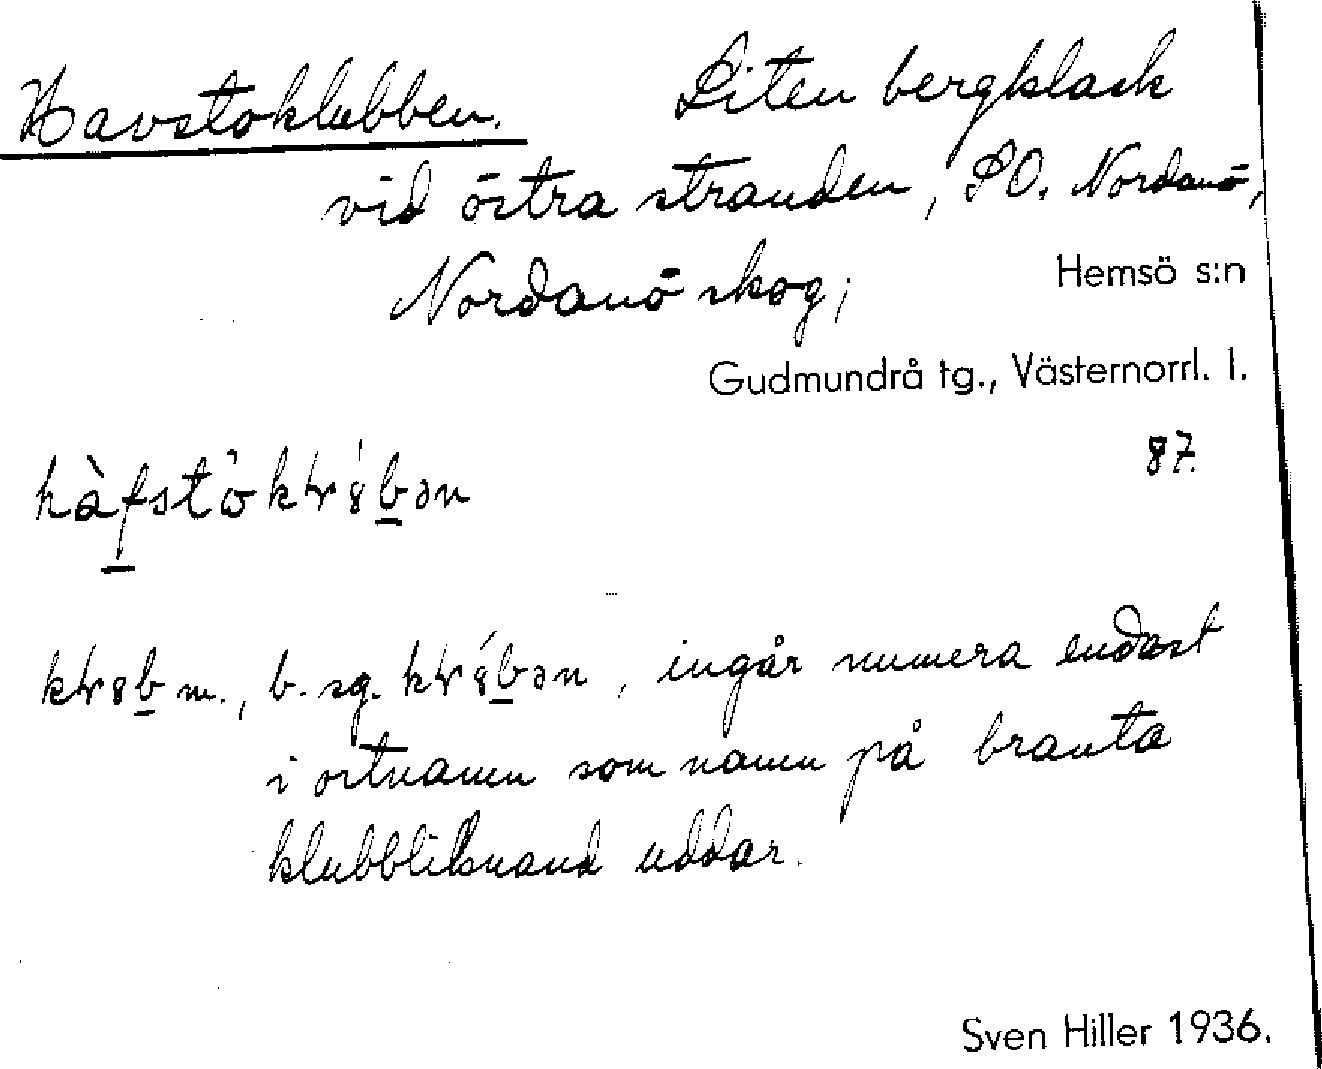 Havstoklubben. Liten bergklack
vid östra stranden, SO. Nordanö,
Nordanö skog; Hemsö s:n
Gudmundrå tg., Västernorrl. l.
87.
m., b. sg. , ingår numera endast
i ortnamn som namn på branta
klubbliknand uddar.
Sven Hiller 1936.